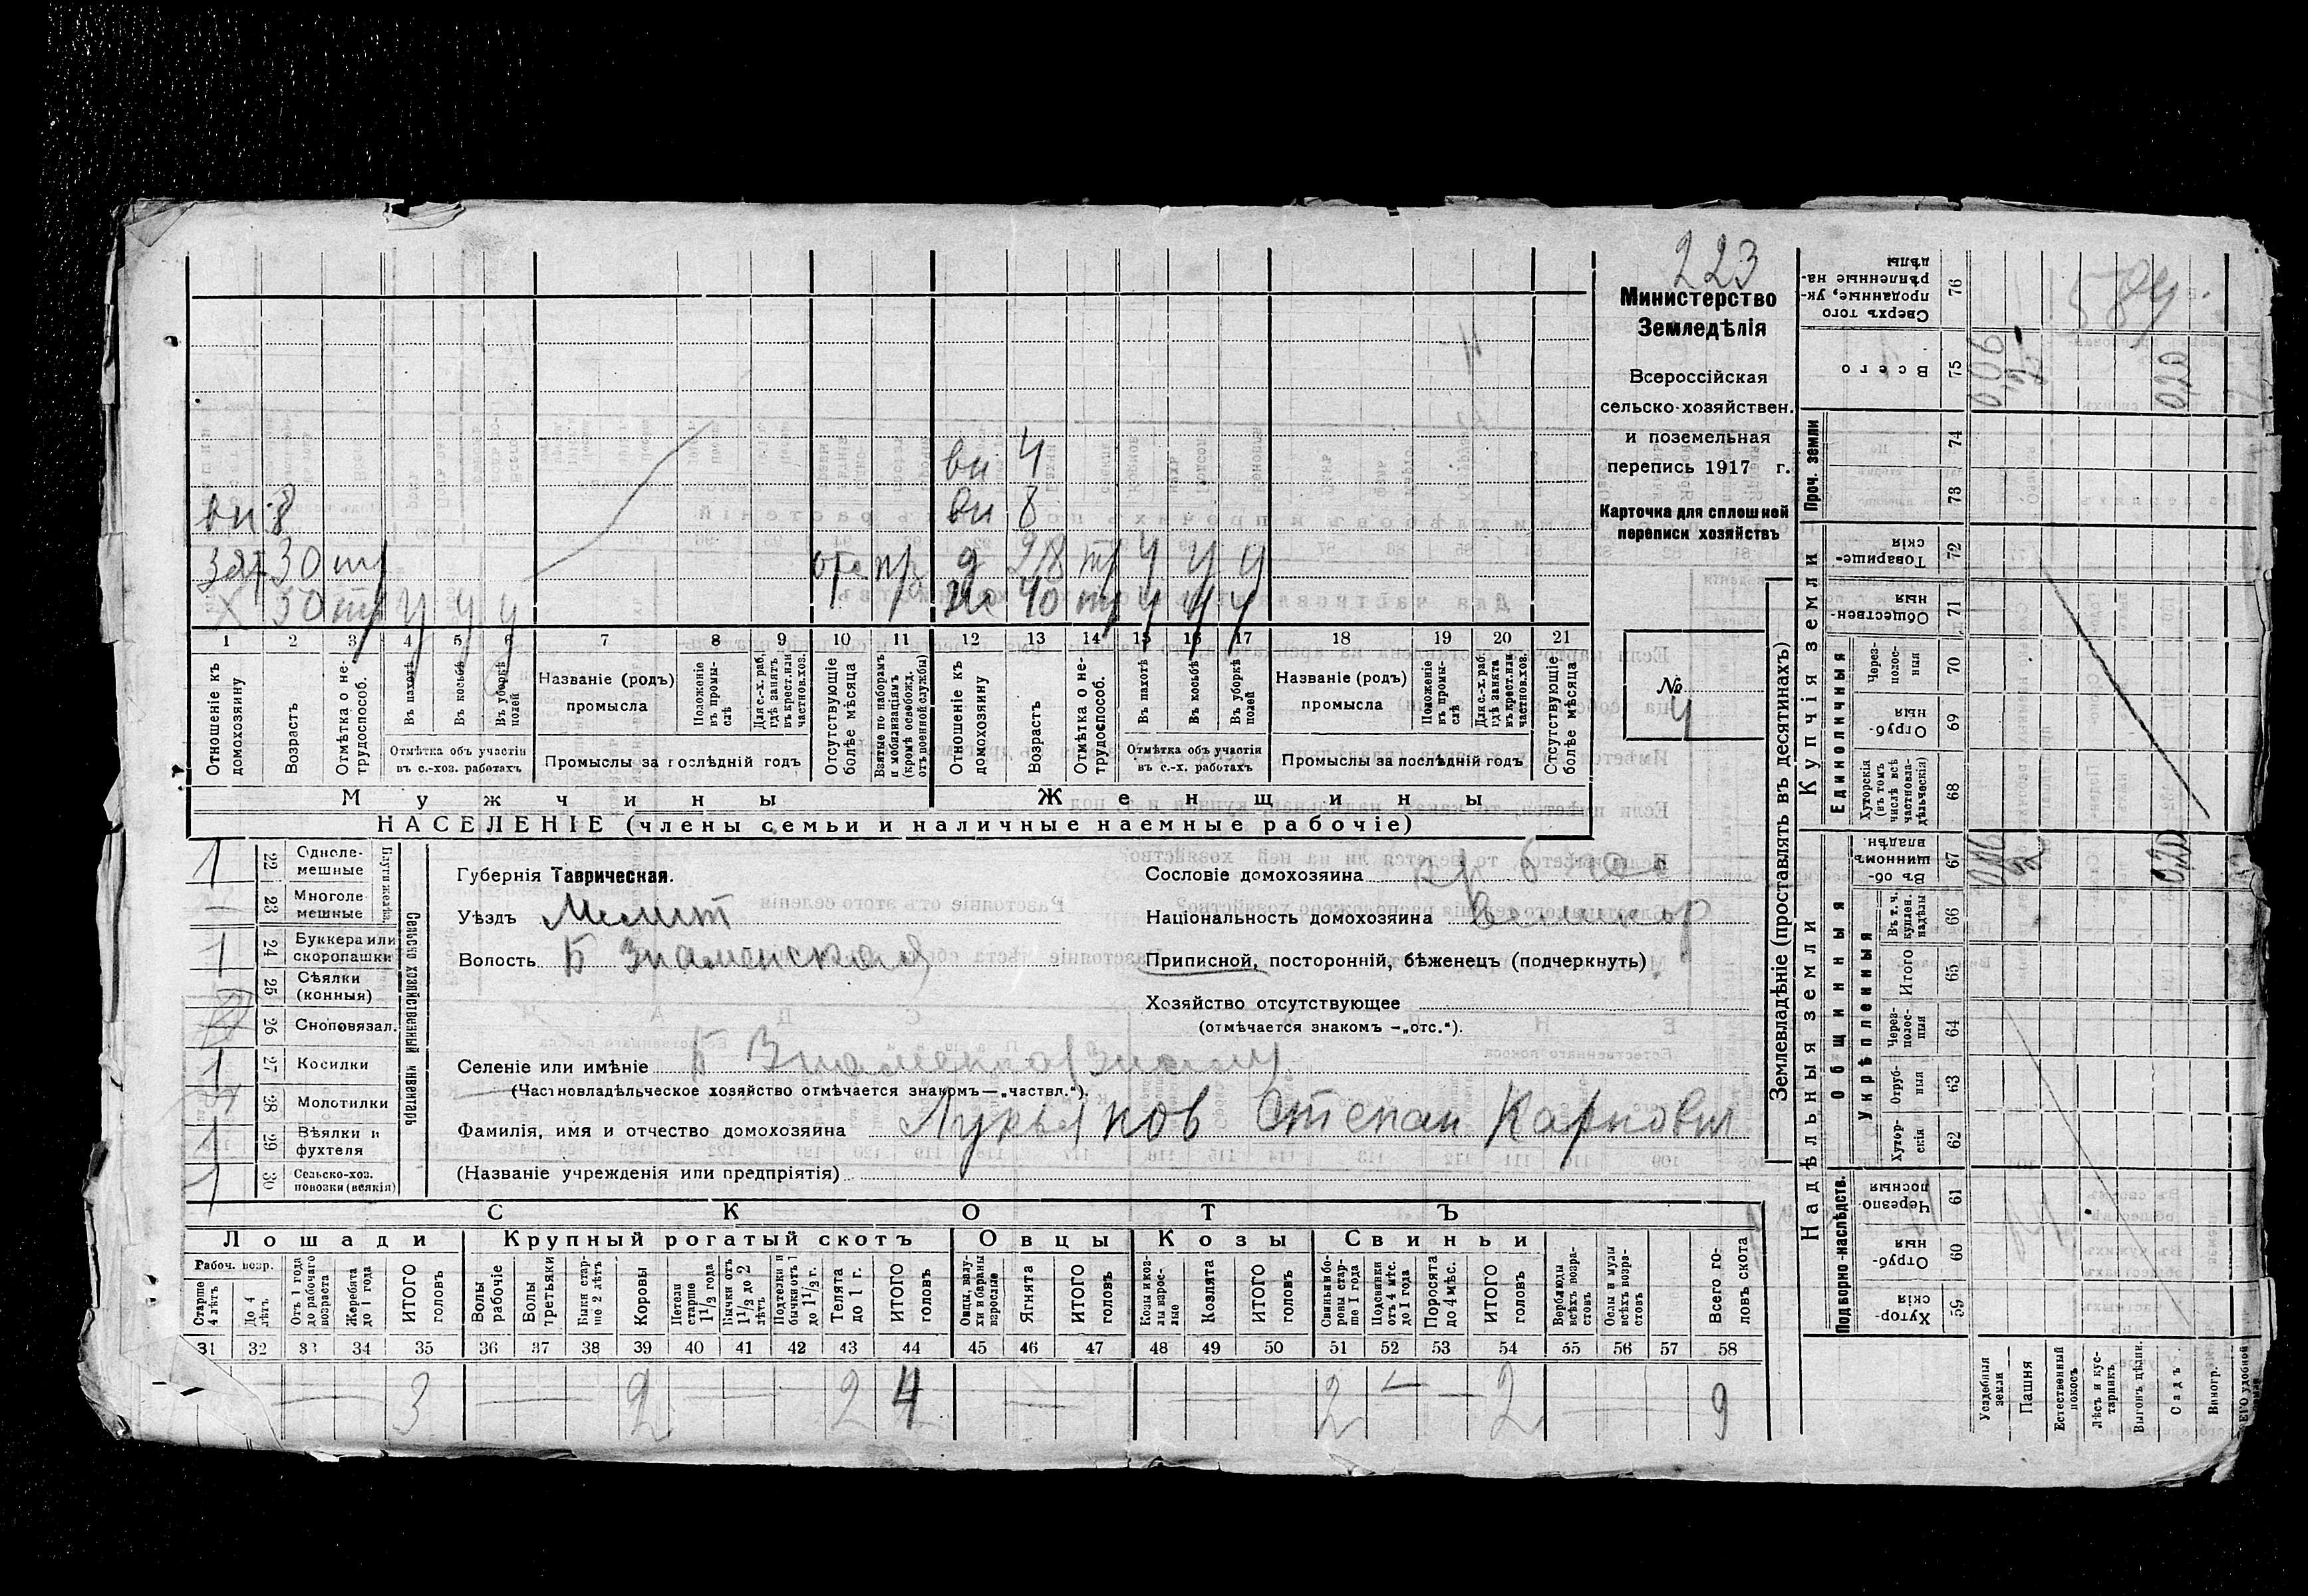 223
Министерство
Земледѣлія
Всероссійская
сельско-хозяйствен.
и поземельная
перепись 1917 г.
Карточка для сплошной
переписи хозяйствъ
№
4
вн 4
вн 8 вн 8
зят 30 отс д 28
х 50 40
1 2 3 4 5 6 7 8 9 10 11 12 13 14 15 16 17 18 19 20 21
Отношеніе къ домохозяину
Возрастъ
Отмѣтка о не-трудоспособ.
Въ пахотѣ
Въ косьбѣ
Въ уборкѣ полей
Отмѣтка объ участіи въ с.-хоз. работахъ
Названіе (родъ) промысла
Положеніе въ промы-слѣ
Для с.-х. раб., гдѣ занятъ въ крест. или частнов. хоз.
Промыслы за послѣдній годъ
Отсутствующіе болѣе мѣсяца
Взятые по наборамъ и мобилизаціямъ (кромѣ освобожд. отъ военной службы)
Отношеніе къ домохозяину
Возрастъ
Отмѣтка о не-трудоспособ.
Въ пахотѣ
Въ косьбѣ
Въ уборкѣ полей
Отмѣтка объ участіи въ с.-х. работахъ
Названіе (родъ) промысла
Положеніе въ промы-слѣ
Для с.-х. раб. гдѣ занята въ крест. или частнов. хоз.
Промыслы за послѣдній годъ
Отсутствующіе болѣе мѣсяца
Мужчины Женщины
НАСЕЛЕНІЕ (члены семьи и наличные наемные рабочіе)
Сельско хозяйственный инвентарь
1 22 Одноле-мешные
23 Многоле-мешные
1 24 Буккера или скоропашки
25 Сѣялки (конныя)
26 Сноповязал.
1 27 Косилки
28 Молотилки
1 29 Вѣялки и фухтеля
1 30 Сельско-хоз. повозки (всякія)
Губернія Таврическая.
Уѣздъ Мелит
Волость Б Знаменская
Сословіе домохозяина
Національность домохозяина великор
Приписной, посторонній, бѣженецъ (подчеркнуть)
Хозяйство отсутствующее
(отмѣчается знакомъ —„отс.“).
Селеніе или имѣніе Б Знаменка
(Частновладѣльческое хозяйство отмѣчается знакомъ—„частвл.“).
Фамилія, имя и отчество домохозяина Лукьянов Степан Карпович
(Названіе учрежденія или предпріятія)
СКОТЪ
Лошади Крупный рогатый скотъ Овцы Козы Свиньи
Рабоч. возр.
Старше 4 лѣтъ
До 4 лѣтъ.
Отъ 1 года до рабочаго возраста
Жеребята до 1 года
ИТОГО головъ
Волы рабочіе
Волы третьяки
Быки стар-ше 2 лѣтъ
Коровы
Нетели старше 1 1/2 года
Бычки отъ 1 1/2 до 2 лѣтъ
Подтелки и бычки отъ 1 до 1 1/2 г.
Телята до 1 г.
ИТОГО головъ
Овцы, валу-хи и бараны взрослые
Ягнята
ИТОГО головъ
Козы и коз-лы взрос-лые
Козлята
ИТОГО головъ
Свиньи и бо-ровы стар-ше 1 года
Подсвинки отъ 4 мѣс. до 1 года
Поросята до 4 мѣс.
ИТОГО головъ
Верблюды всѣхъ возра-стовъ
Ослы и мулы всѣхъ возра-стовъ
Всего го-ловъ скота
31 32 33 34 35 36 37 38 39 40 41 42 43 44 45 46 47 48 49 50 51 52 53 54 55 56 57 58
3 2 2 4 2 2 9
Землевладѣніе (проставлять въ десятинахъ)
Надѣльныя земли Купчія земли
Подворно-наслѣдств. Общинныя Укрѣпленныя Единоличныя Проч. земли
Сверхъ того проданные, ук-рѣпленные на-дѣлы 76
Всего 75
74
73
Товарище-скія 72
Обществен-ныя 71
Через-полос-ныя 70
Отруб-ныя 69
Хуторскія (въ томъ числѣ всѣ частновла-дѣльческія) 68
Въ об-щинномъ владѣн. 67
Въ т. ч. куплен. надѣлы 66
Итого 65
Через-полос-ныя 64
Отруб-ныя 63
Хутор-скія 62
Черезпо-лосныя 61
Отруб-ныя 60
Хутор-скія 59
Усадебныя земли
Пашня
Естественный покосъ
Лѣсъ и кус-тарникъ
Выгонъ цѣлин.
Садъ
Виногр.
006
020
020